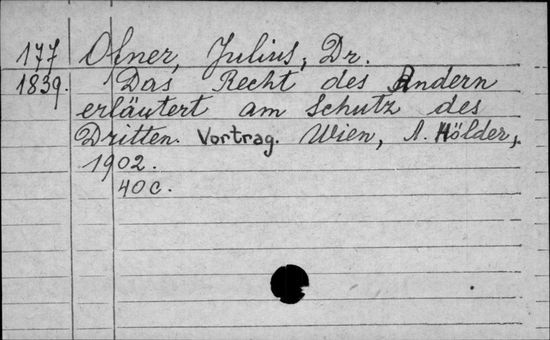 177 Ofner, Julius, Dr.
1839. Das Recht des Andern
erläutert am Schutz des
Dritten. Vortrag. Wien, A. Hölder,
1902.
40 c.